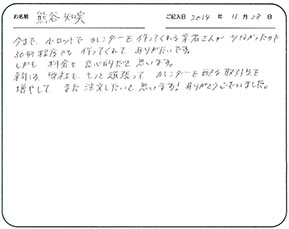 お名前 熊谷 知実 ご記入日 2014 年 11 月 28 日
今まで、小ロットで カレンダーを作ってくれる業者さんが 少なかったので
30冊程度でも 作ってくれて ありがたいです。
しかも 料金も 良心的だと 思います。
弊社も、もっと 頑張って カレンダーを配る 取引先を
増やして また 注文したいと 思います! ありがとうございました。